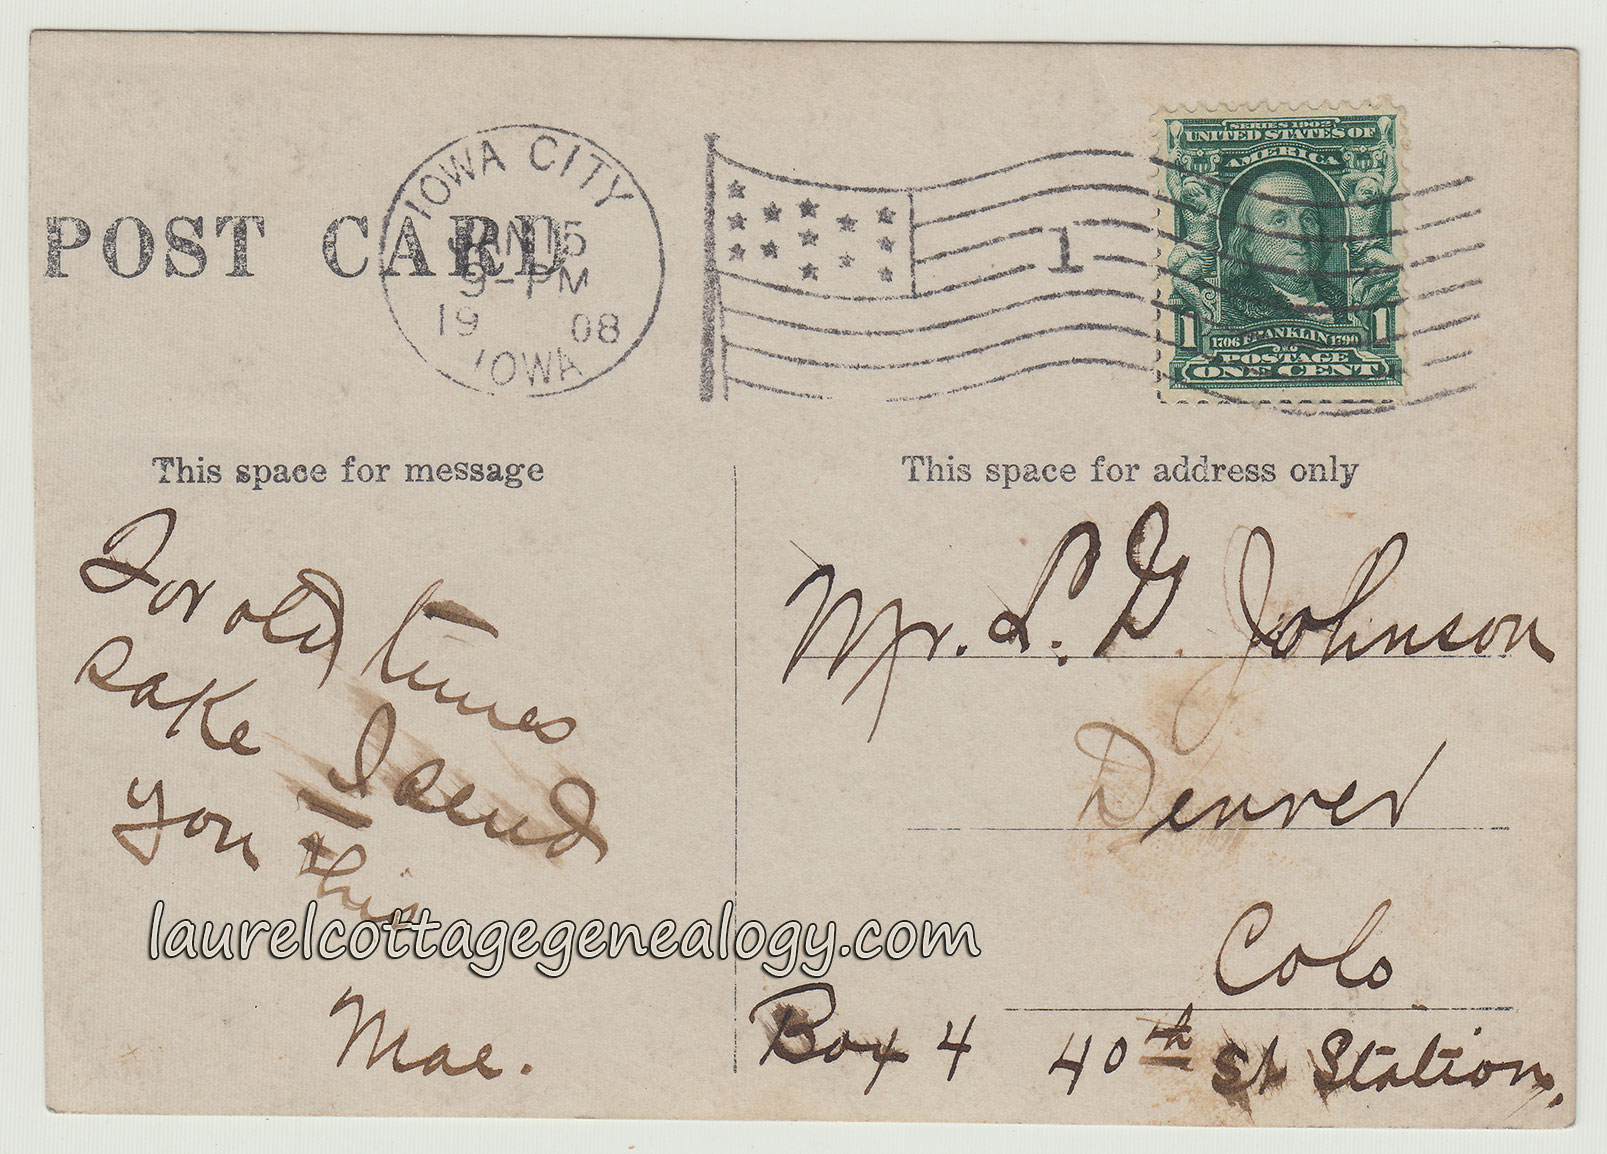 POST CARD
IOWA CITY
JAN 15
9-PM
19 08
IOWA
1
SERIES 1902
UNITED STATES OF
AMERICA
1 1706 FRANKLIN 1790 1
POSTAGE
ONE CENT
This space for message
For old times
sake I send
you this
Mae.
This space for address only
Mr. L. G. Johnson
Denver
Colo.
Box 4 40th St Station.
laurelcottagegenealogy.com